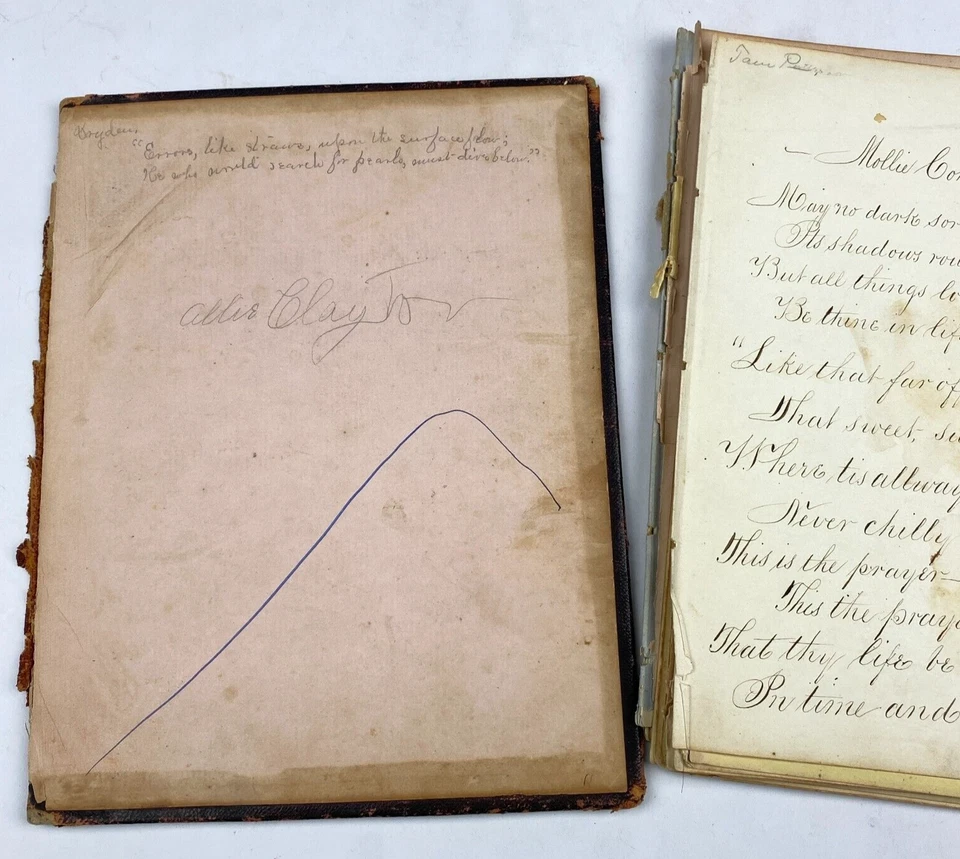 Dryden.
"Errors, like straws, upon the surface flow;
He who would search for pearls, must dive below."
allie Clayton
Tam
Mollie
May no dark
Its shadows
But all things
Be thine in
"Like that far
That sweet,
Where tis allway
Never chilly
This is the prayer—
This the
That thy life be
In time and